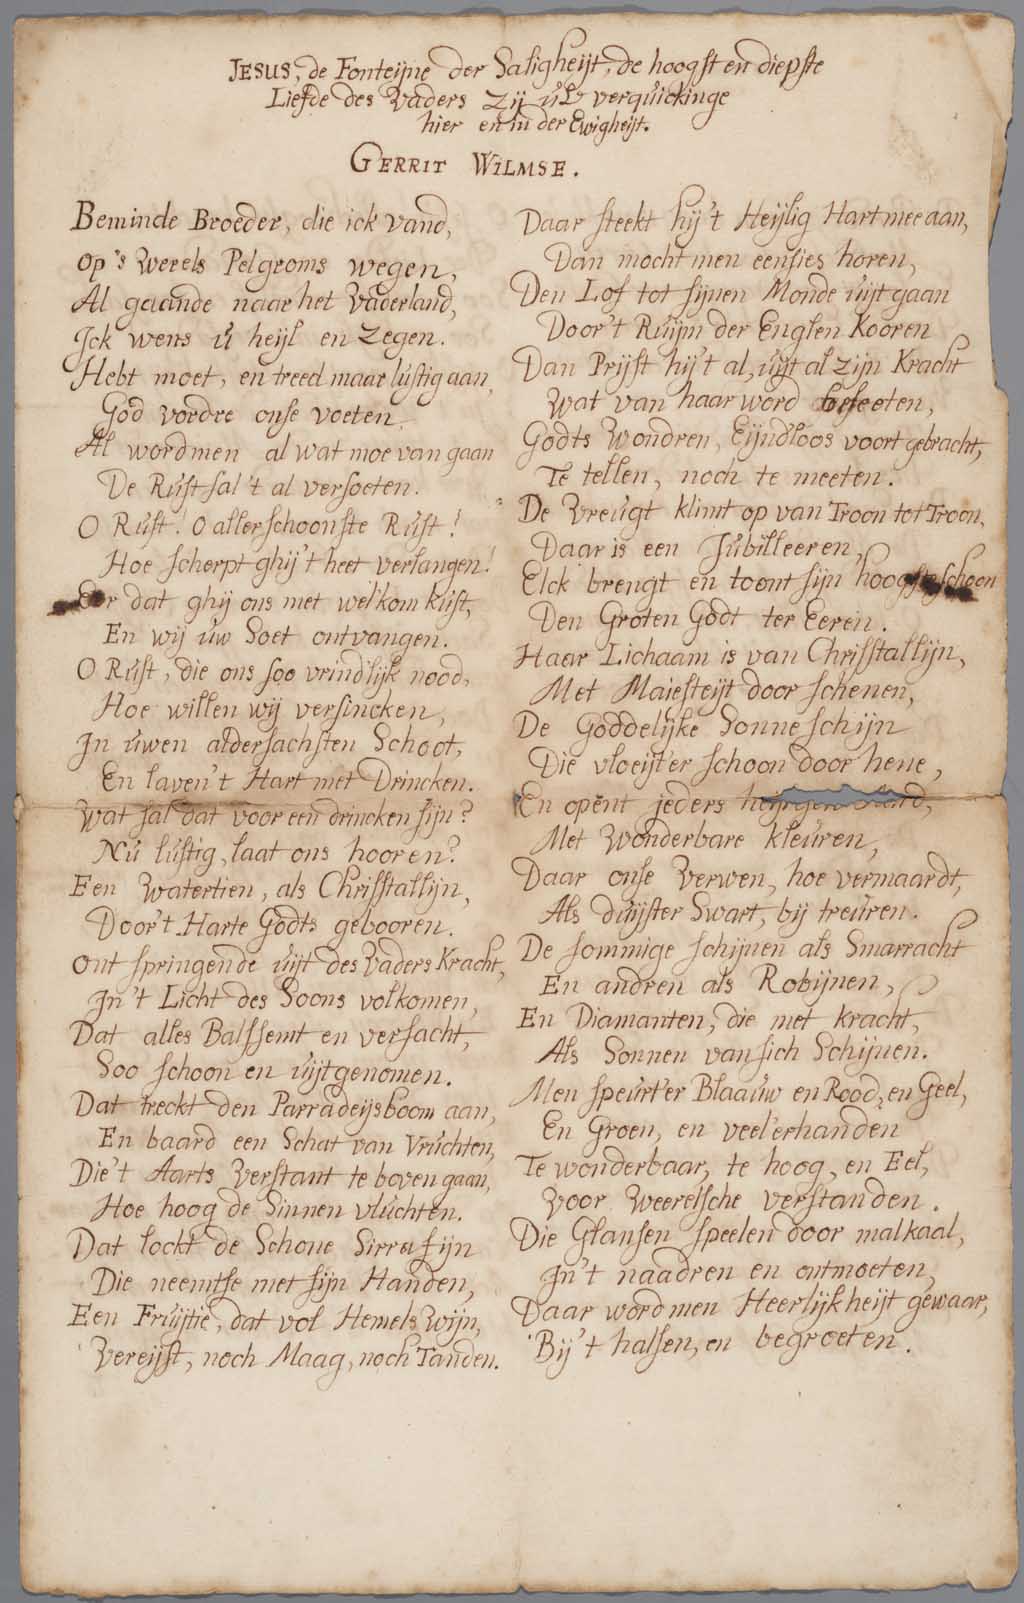 JESUS, de Fonteijne der Saligheijt, de hoogst en diepste
Liefde des Vaders Zij ul verquickinge
hier en in der Ewigheijt.
GERRIT WILMSE.
Beminde Broeder, die ick vand,
Op 's Werels Pelgroms wegen,
Al gaande naar het Vaderland,
Ick wens u heijl en Zegen.
Hebt moet, en treed maar lustig aan,
God vordre onse voeten,
Al word men al wat moe van gaan
De Rust sal 't al versoeten.
O Rust! O allerschoonste Rust!
Hoe scherpt ghij 't heet verlangen!
Eer dat ghij ons met welkom kust,
En wij uw Soet ontvangen.
O Rust, die ons soo vrindlijk nood,
Hoe willen wij versincken,
In uwen aldersachsten Schoot,
En laven 't Hart met Drincken.
Wat sal dat voor een drincken sijn?
Nu lustig, laat ons hooren?
Een Watertien, als Chrisstallijn,
Door 't Harte Godts gebooren.
Ont springende uijt des Vaders Kracht,
In 't Licht des Soons volkomen,
Dat alles Balssemt en versacht,
Soo schoon en uijtgenomen.
Dat treckt den Parradeijsboom aan,
En baard een Schat van Vruchten,
Die 't Aarts Verstant te boven gaan,
Hoe hoog de Sinnen vluchten.
Dat lockt de Schone Sirrafijn
Die neemtse met sijn Handen,
Een Fruijtie, dat vol Hemels Wijn,
Vereijst, noch Maag, noch Tanden.
Daar steekt hij 't Heijlig Hart mee aan,
Dan mocht men eensies horen,
Den Lof tot sijnen Monde uijt gaan
Door 't Ruijm der Englen Kooren
Dan Prijst hij 't al, uijt al zijn Kracht
Wat van haar word beseeten,
Godts Wondren, Eijndloos voort gebracht,
Te tellen, noch te meeten.
De Vreugt klimt op van Troon tot Troon,
Daar is een Jubilleeren,
Elck brengt en toont sijn hoogste schoon
Den Groten Godt ter Eeren.
Haar Lichaam is van Chrisstallijn,
Met Maiesteijt door schenen,
De Goddelijke Sonneschijn
Die vloeijt'er schoon door hene,
En opent jeders
Met Wonderbare kleuren,
Daar onse Verwen, hoe vermaardt,
Als duijster Swart, bij treuren.
De sommige schijnen als Smarracht
En andren als Robijnen,
En Diamanten, die met kracht,
Als Sonnen van sich Schijnen.
Men speurt'er Blaauw en Rood, en Geel,
En Groen, en veelerhanden
Te wonderbaar, te hoog, en Eel,
Voor Weerelsche verstanden.
Die Glansen speelen door malkaal,
In 't naadren en ontmoeten,
Daar word men Heerlijkheijt gewaar,
Bij 't halsen, en begroeten.